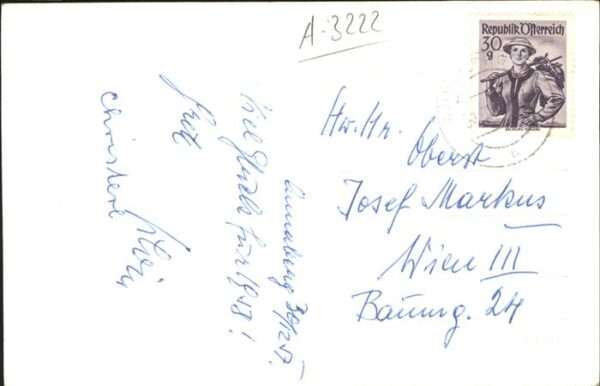 A-3222
Republik Österreich
30
g
Annaberg 30/12 57.
Viel Glück für 1958!
Hw. Hr.
Oberst
Josef Markus
Wien III
Baumg. 24